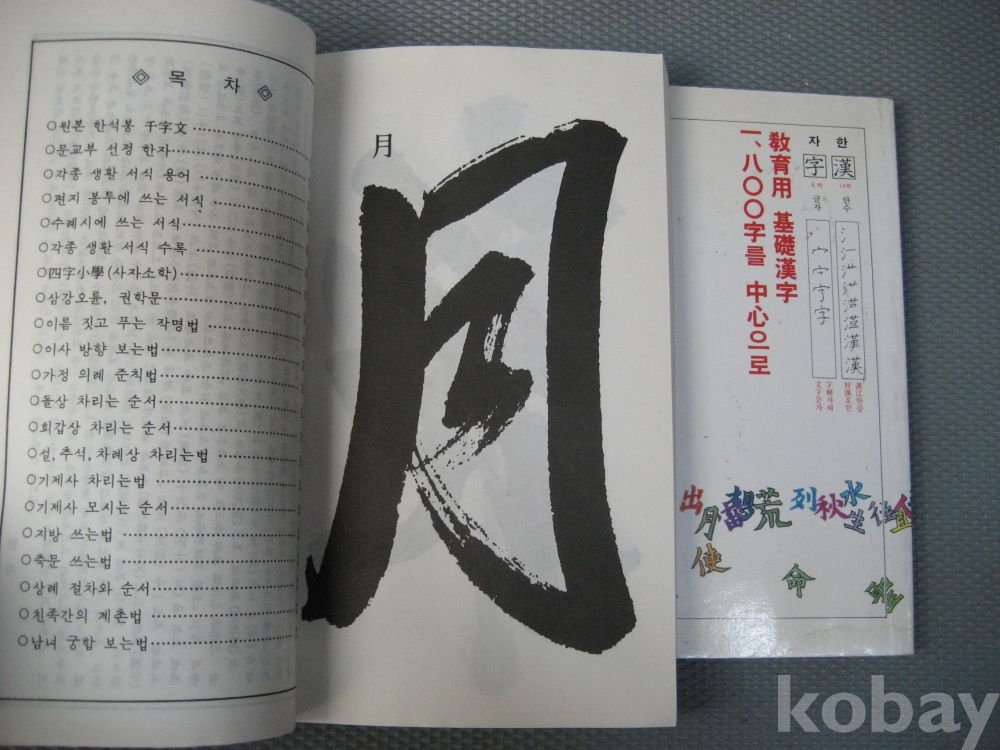 목 차
○원본 한석봉 千字文
○문교부 선정 한자
○각종 생활 서식 용어
○편지 봉투에 쓰는 서식
○수례시에 쓰는 서식
○각종 생활 서식 수록
○四字小學(사자소학)
○삼강오륜, 권학문
○이름 짓고 푸는 작명법
○이사 방향 보는법
○가정 의례 준칙법
○돌상 차리는 순서
○회갑상 차리는 순서
○설,추석,차례상 차리는법
○기제사 차리는법
○기제사 모시는 순서
○지방 쓰는법
○축문 쓰는법
○상례 절차와 순서
○친족간의 계촌법
○남녀 궁합 보는법
月
月
한 자
漢 字
14획 6획
한수 글자
漢江한강
好漢호한
字解자해
文字문자
敎育用 基礎漢字
一、八〇〇字를 中心으로
出 月 荒 列 秋 水 生 往
使 命 聖
kobay